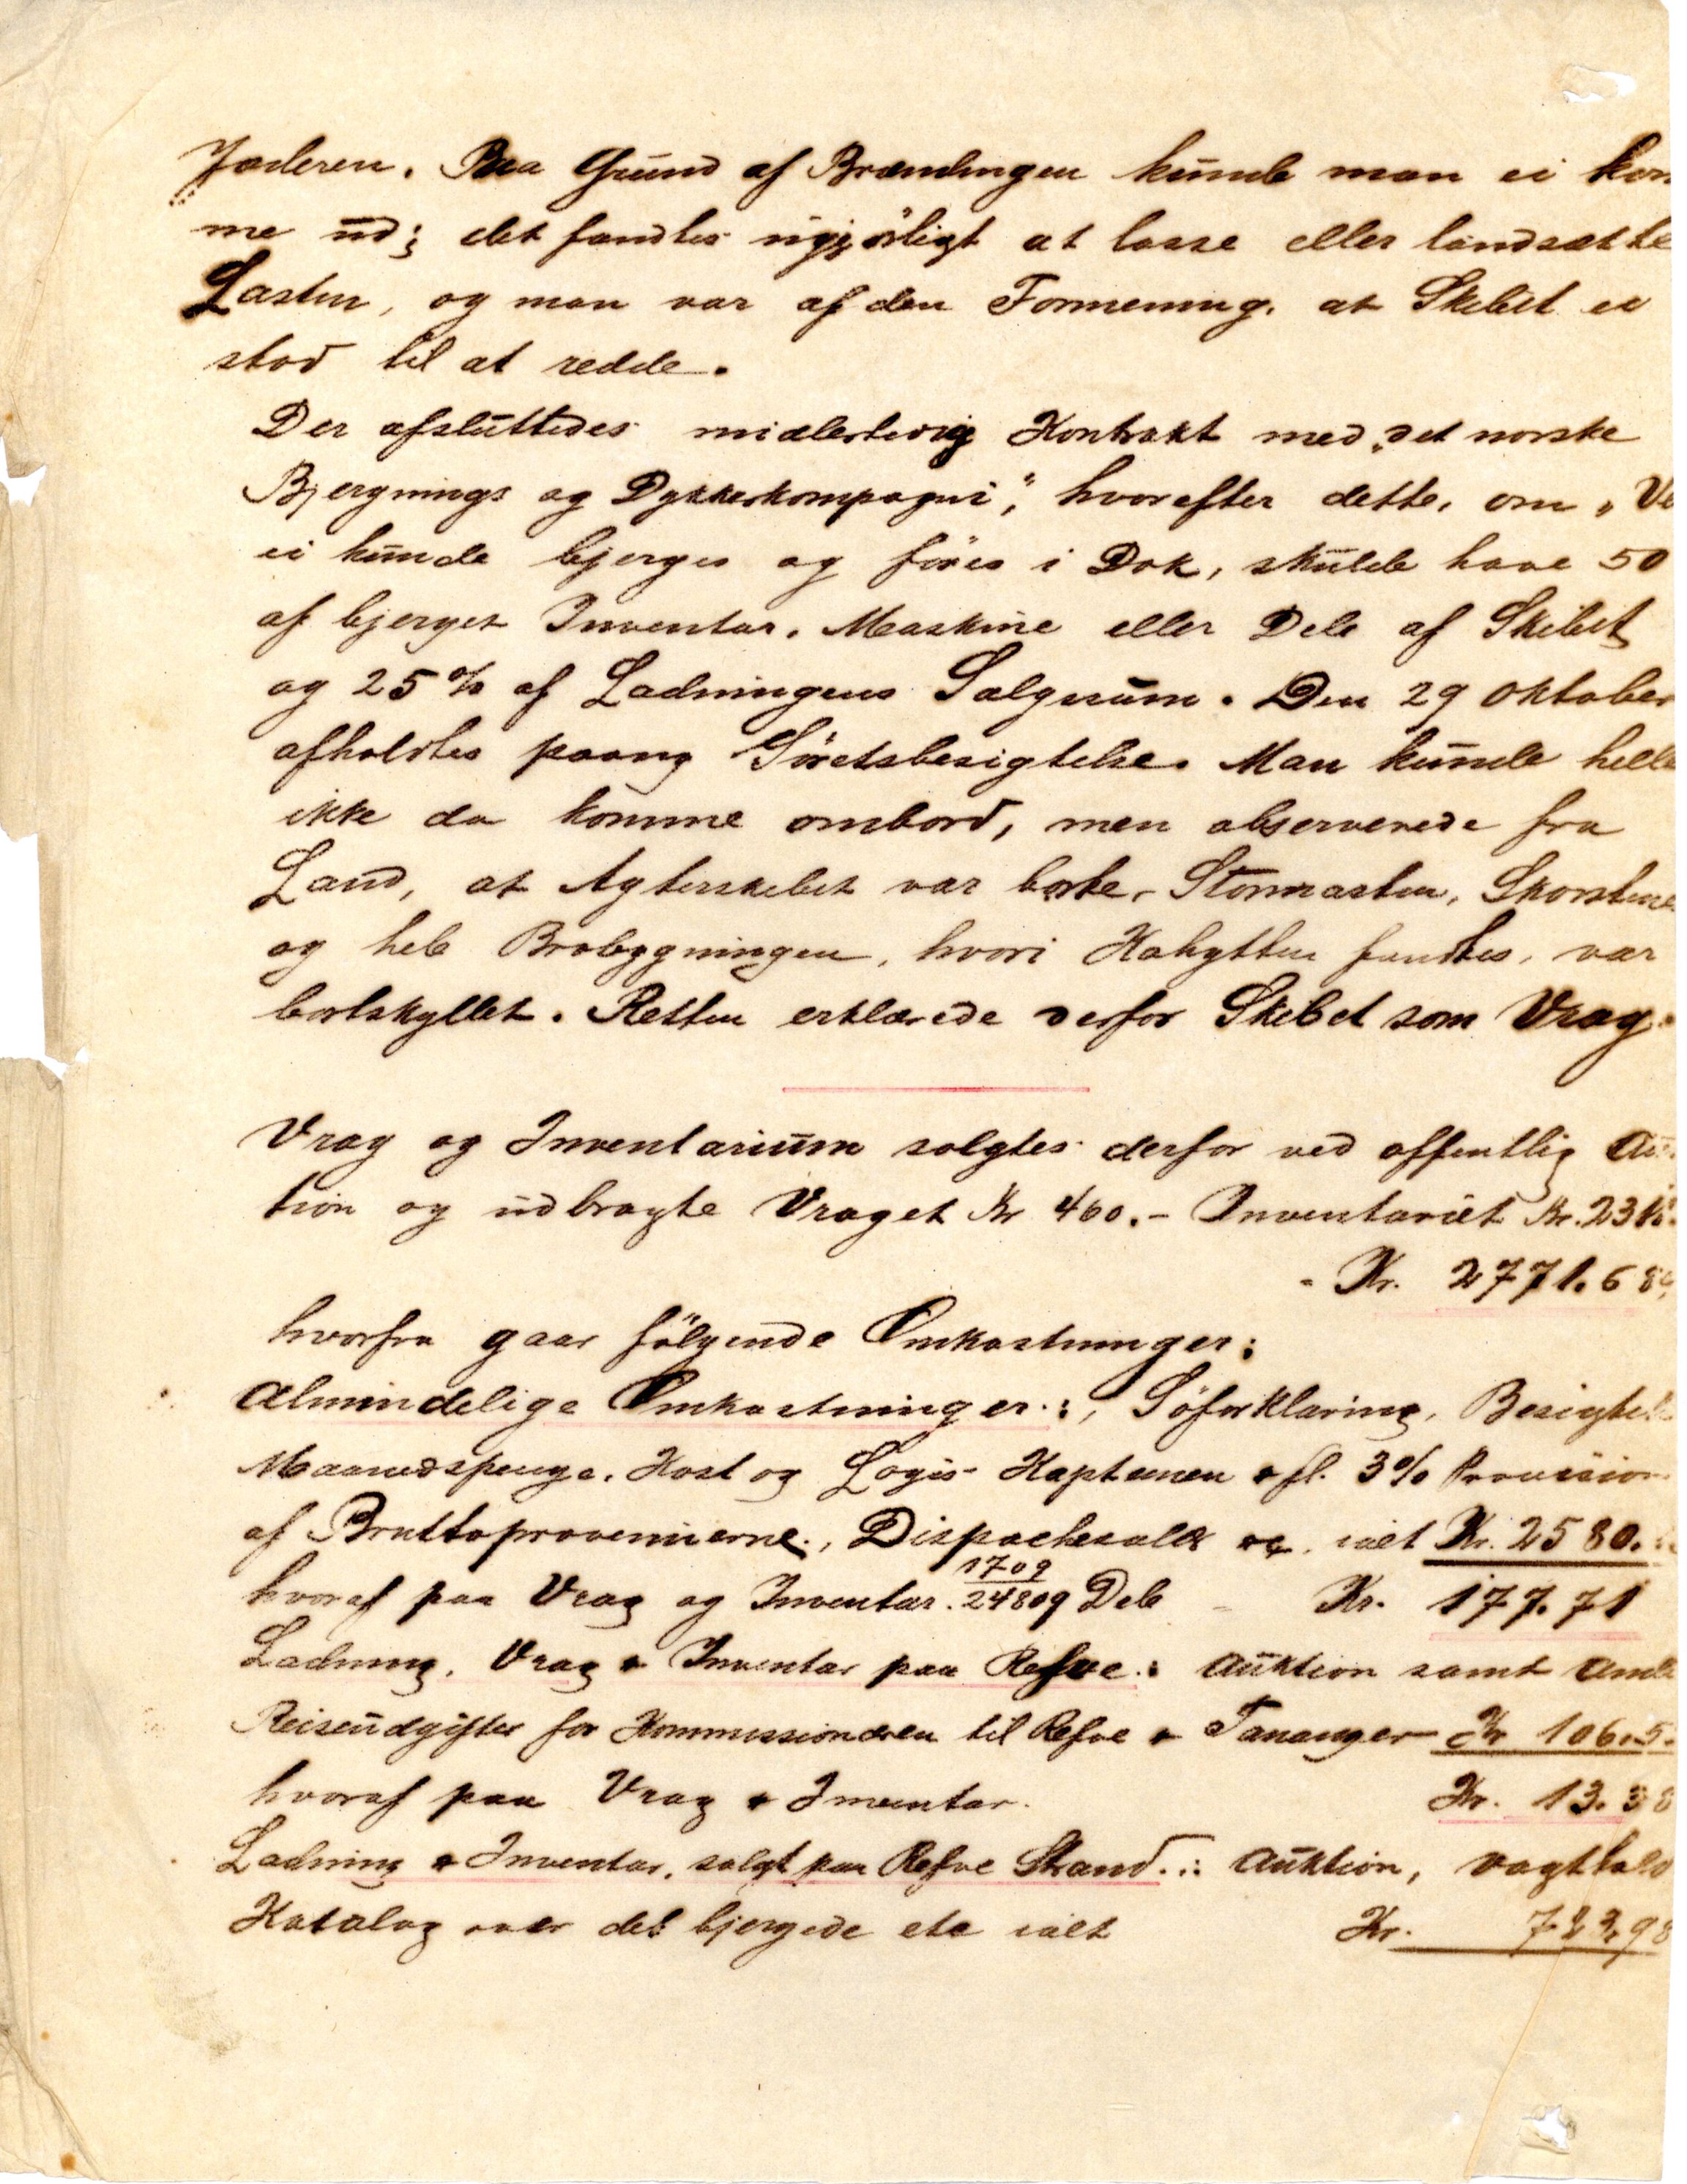 Jæderen. Paa Grund af Brændingen kunde man ei kom
me ud; det fandtes ugjørligt at losse eller landsætte
Lasten, og man var af den Formening. at Skibet ei
stod til at redde.
Der afsluttedes midlertidig Kontrakt med „det norske
Bjergnings og Dykkerkompagni“, hvorefter dette, om „Ve
ei kunde bjerges og føres i Dok, skulde have 50
af bjerget Inventar, Maskine eller Dele af Skibet
og 25% af Ladningens Salgssum. Den 29 Oktober
afholdtes paany Søretsbesigtelse. Man kunde helle
ikke da komme ombord, men observerede fra
Land, at Agterskibet var borte, Stormasten, Skorstene
og hele Brobygningen, hvori Kahytten fandtes, var
bortskyllet. Retten erklærede derfor Skibet som Vrag.
Vrag og Inventarium solgtes derfor ved offentlig Au
tion og udbragte Vraget Kr 460.- Inventariet Kr. 231
- Kr. 2771.68
hvorfra gaar følgende Omkostninger:
Almindelige Omkostninger:, Søforklaring, Besigtel
Maanedspenge, Kost og Logis Kapteinen & fl. 3% Provision
af Bruttoprovenuerne., Dispachesalær etc. ialt Kr. 2580.
hvoraf paa Vrag og Inventar. 1709/24809 Dele - Kr. 177.71
Ladning, Vrag & Inventar paa Refve.: Auktion samt Ande
Reiseudgifter for Kommissionæren til Refve & Tananger Kr 106.5
hvoraf paa Vrag & Inventar. Kr. 13.38
Ladning & Inventar, solgt paa Refve Strand.: Auktion, Vagthold
Katalog over det bjergede etc ialt Kr. 723,98